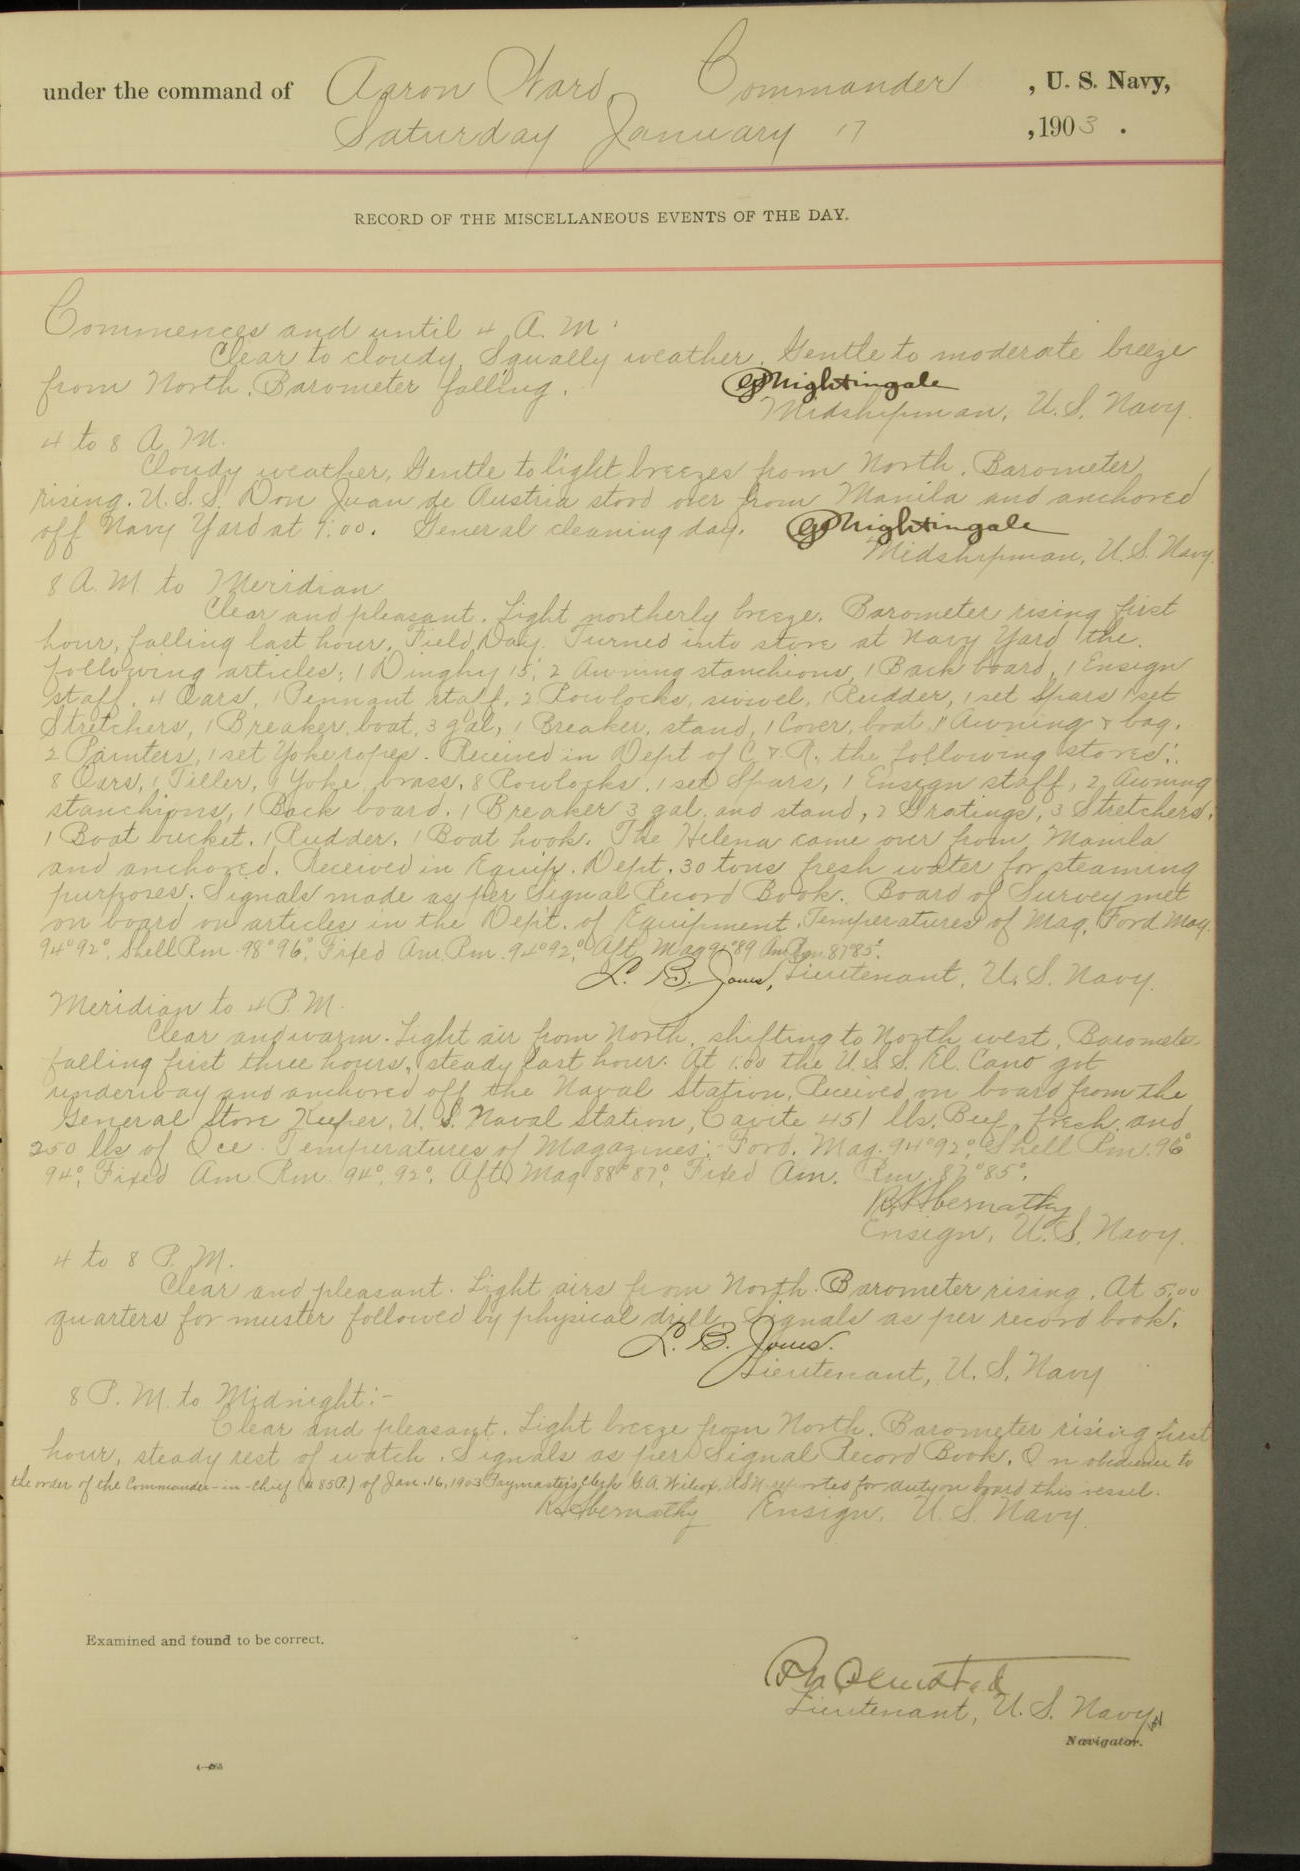 under the command of Aaron Ward Commander , U. S. Navy,
Saturday January 17 , 1903 .
RECORD OF THE MISCELLANEOUS EVENTS OF THE DAY.
Commences and until 4 A. M.
Clear to cloudy. Squally weather. Gentle to moderate breeze
from North. Barometer falling. Nightingale
Midshipman, U. S. Navy.
4 to 8 A. M.
Cloudy weather, Gentle to light breezes from North. Barometer
rising. U. S. S. Don Juan de Austria stood over from Manila and anchored
off Navy Yard at 7.00. General cleaning day. Nightingale
Midshipman, U. S. Navy.
8 A. M. to Meridian
Clear and pleasant. Light northerly breeze. Barometer rising first
hour, falling last hour. Field Day. Turned into store at Navy Yard the
following articles; 1 Dinghy 15', 2 Awning stanchions, 1 Back board, 1 Ensign
staff, 4 Oars, 1 Pennant staff, 2 Rowlocks, swivel, 1 Rudder, 1 set Spars 1 set
Stretchers, 1 Breaker, boat, 3 gal, 1 Breaker, stand, 1 Cover, boat, 1 Awning & bag.
2 Painters, 1 set Yoke ropes. Received in Dept of C & R. the following stores:
8 Oars, 1 Tiller, 1 Yoke, brass, 8 Rowlocks, 1 set Spars, 1 Ensign staff, 2 Awning
stanchions, 1 Back board, 1 Breaker 3 gal. and stand, 2 Gratings, 3 Stretchers,
1 Boat bucket, 1 Rudder, 1 Boat hook. The Helena came over from Manila
and anchored. Received in Equip. Dept. 30 tons fresh water for steaming
purposes. Signals made as per Signal Record Book. Board of Survey met
on board on articles in the Dept. of Equipment. Temperatures of Mag. Ford Mag.
94° 92°, Shell Rm 98° 96°, Fixed Am. Rm. 94° 92°, Aft. Mag 91° 89 Am Rm 87° 85°.
L. B. Jones, Lieutenant, U. S. Navy.
Meridian to 4 P. M.
Clear and warm. Light air from North, shifting to North west, Barometer
falling first three hours, steady last hour. At 1.00 the U. S. S. El Cano got
underway and anchored off the Naval Station. Received on board from the
General Store Keeper, U. S. Naval Station, Cavite 451 lbs. Beef, fresh, and
250 lbs of Ice. Temperatures of Magazines:- Ford. Mag. 94° 92°, Shell Rm. 96°
94°, Fixed Am. Rm. 94°, 92°, Aft Mag 88° 87°, Fixed Am. Rm. 87° 85°.
Abernathy
Ensign, U. S. Navy.
4 to 8 P. M.
Clear and pleasant. Light airs from North. Barometer rising. At 5.00
quarters for muster followed by physical drill. Signals as per record book.
L. B. Jones.
Lieutenant, U. S. Navy
8 P. M. to Midnight:-
Clear and pleasant. Light breeze from North. Barometer rising first
hour, steady rest of watch. Signals as per Signal Record Book. In obedience to
the order of the Commander-in-Chief ( 85P.) of Jan. 16, 1903 Paymaster's Clerk G. A. Wilcox, USN reported for duty on board this vessel.
Abernathy Ensign, U. S. Navy.
Examined and found to be correct.
Olmsted
Lieutenant, U. S. Navy,
Navigator.